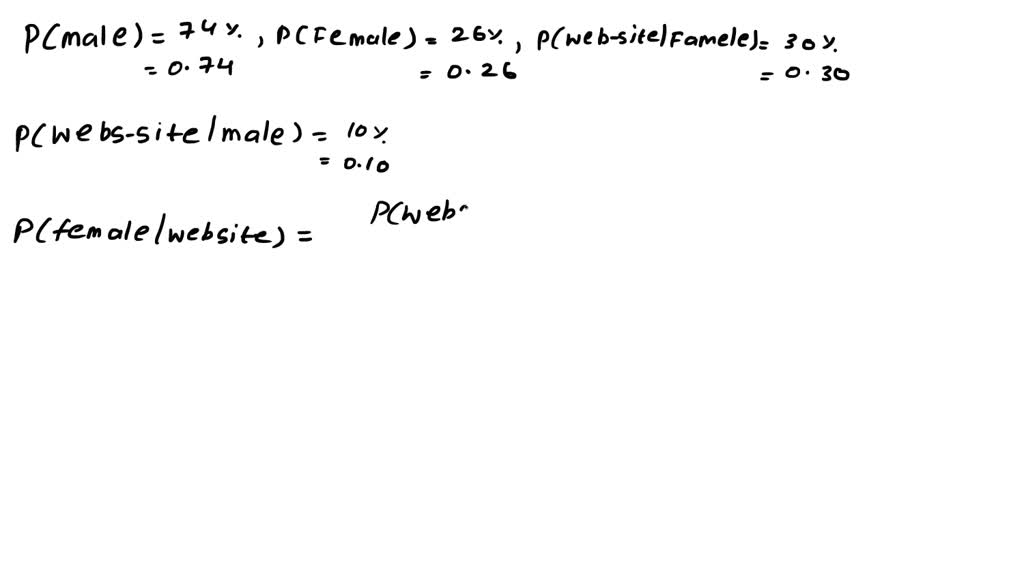 P(male) = 74%, P(Female) = 26%, P(web-site/Famele) = 30%
= 0.74 = 0.26 = 0.30
P(webs-site/male) = 10%
= 0.10
P(web
P(female/website) =